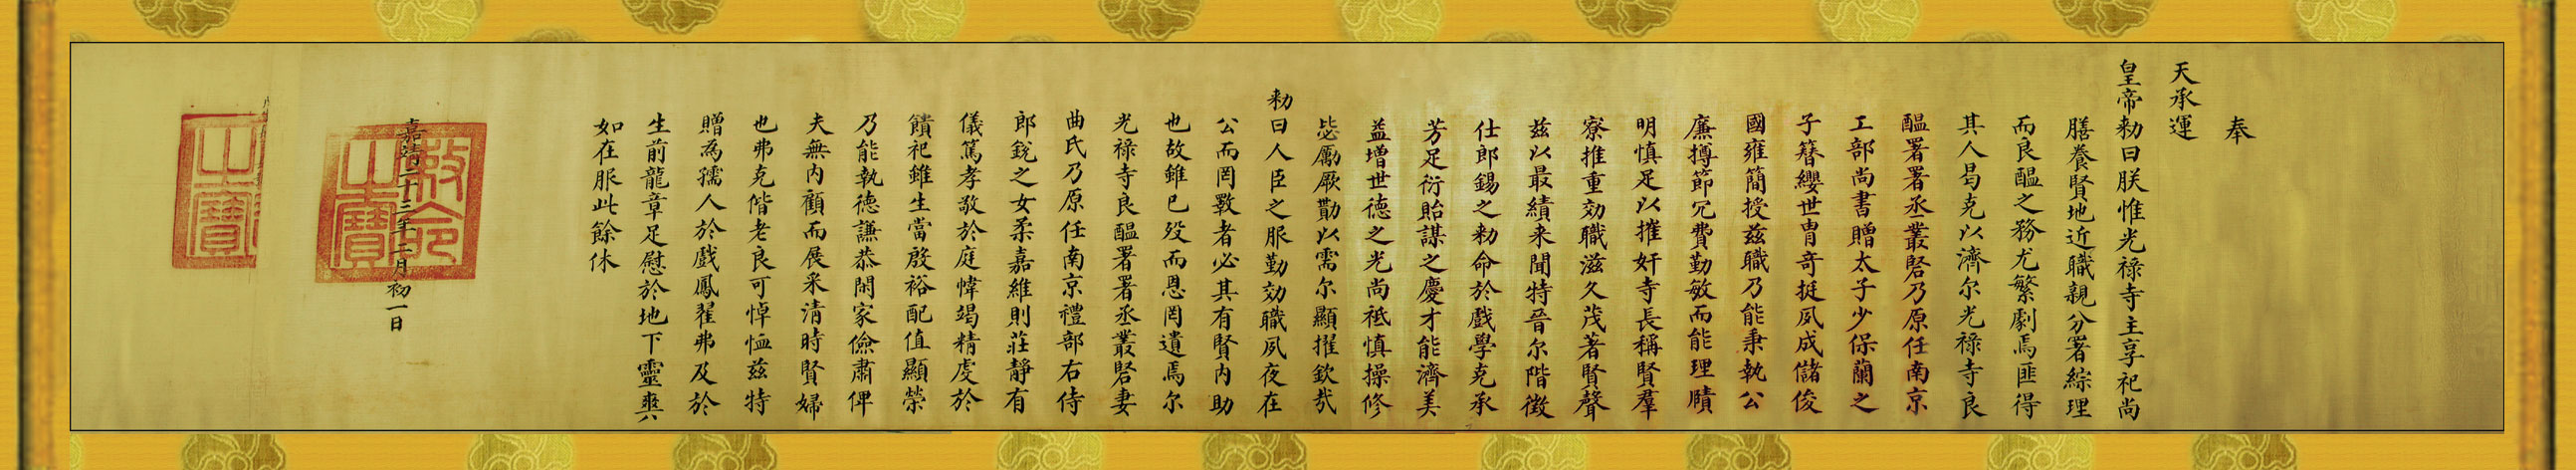 奉
天承運
皇帝勑曰朕惟光禄寺主享祀尚
膳養賢地近職親分署綜理
而良醖之務尤繁劇焉匪得
其人曷克以濟尔光禄寺良
醖署署丞叢磬乃原任南京
工部尚書贈太子少保蘭之
子簪纓世胄奇挺夙成儲俊
國雍簡授兹職乃能秉執公
廉撙節冗費勤敏而能理賾
明慎足以摧奸寺長稱賢羣
寮推重効職滋久茂著賢聲
兹以最績来聞特晉尔階徴
仕郎錫之勑命於戲學克承
芳足衍貽謀之慶才能濟美
益增世德之光尚祗慎操修
毖勵厥勩以需尔顯擢欽㢤
勑曰人臣之服勤効職夙夜在
公而罔斁者必其有賢内助
也故錐已歿而恩罔遺焉尔
光禄寺良醖署署丞叢磬妻
曲氏乃原任南京禮部右侍
郎鋭之女柔嘉維則莊静有
儀篤孝敬於庭幃竭精虔於
饋祀錐生當殷裕配值顯榮
乃能執德謙恭閑家儉肅俾
夫無内顧而展采清時賢婦
也弗克偕老良可悼恤兹特
贈為孺人於戲鳳翟弗及於
生前龍章足慰於地下靈爽
如在服此餘休
嘉靖二十三年二月初一日
敕命
之寶
之寶